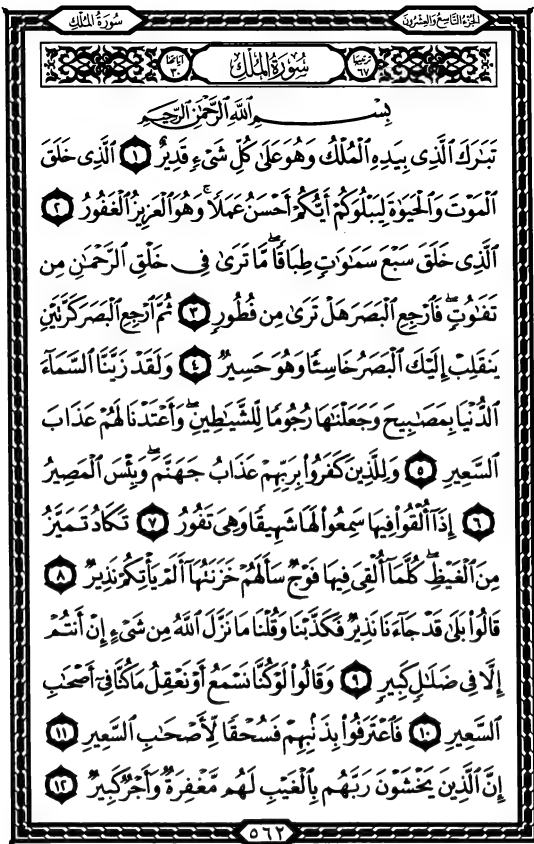 الجزء التاسع والعشرون
سُورَةُ المُلْكِ
ترتيبها ٦٧
سُورَةُ المُلْكِ
آياتها ٣٠
بِسْمِ اللَّهِ الرَّحْمَٰنِ الرَّحِيمِ
تَبَٰرَكَ ٱلَّذِى بِيَدِهِ ٱلْمُلْكُ وَهُوَ عَلَىٰ كُلِّ شَىْءٍ قَدِيرٌ ١ ٱلَّذِى خَلَقَ
ٱلْمَوْتَ وَٱلْحَيَوٰةَ لِيَبْلُوَكُمْ أَيُّكُمْ أَحْسَنُ عَمَلًا ۚ وَهُوَ ٱلْعَزِيزُ ٱلْغَفُورُ ٢
ٱلَّذِى خَلَقَ سَبْعَ سَمَٰوَٰتٍ طِبَاقًا ۖ مَّا تَرَىٰ فِى خَلْقِ ٱلرَّحْمَٰنِ مِن
تَفَٰوُتٍ ۖ فَٱرْجِعِ ٱلْبَصَرَ هَلْ تَرَىٰ مِن فُطُورٍ ٣ ثُمَّ ٱرْجِعِ ٱلْبَصَرَ كَرَّتَيْنِ
يَنقَلِبْ إِلَيْكَ ٱلْبَصَرُ خَاسِئًا وَهُوَ حَسِيرٌ ٤ وَلَقَدْ زَيَّنَّا ٱلسَّمَآءَ
ٱلدُّنْيَا بِمَصَٰبِيحَ وَجَعَلْنَٰهَا رُجُومًا لِّلشَّيَٰطِينِ ۖ وَأَعْتَدْنَا لَهُمْ عَذَابَ
ٱلسَّعِيرِ ٥ وَلِلَّذِينَ كَفَرُوا۟ بِرَبِّهِمْ عَذَابُ جَهَنَّمَ ۖ وَبِئْسَ ٱلْمَصِيرُ
٦ إِذَآ أُلْقُوا۟ فِيهَا سَمِعُوا۟ لَهَا شَهِيقًا وَهِىَ تَفُورُ ٧ تَكَادُ تَمَيَّزُ
مِنَ ٱلْغَيْظِ ۖ كُلَّمَآ أُلْقِىَ فِيهَا فَوْجٌ سَأَلَهُمْ خَزَنَتُهَآ أَلَمْ يَأْتِكُمْ نَذِيرٌ ٨
قَالُوا۟ بَلَىٰ قَدْ جَآءَنَا نَذِيرٌ فَكَذَّبْنَا وَقُلْنَا مَا نَزَّلَ ٱللَّهُ مِن شَىْءٍ إِنْ أَنتُمْ
إِلَّا فِى ضَلَٰلٍ كَبِيرٍ ٩ وَقَالُوا۟ لَوْ كُنَّا نَسْمَعُ أَوْ نَعْقِلُ مَا كُنَّا فِىٓ أَصْحَٰبِ
ٱلسَّعِيرِ ١٠ فَٱعْتَرَفُوا۟ بِذَنۢبِهِمْ فَسُحْقًا لِّأَصْحَٰبِ ٱلسَّعِيرِ ١١
إِنَّ ٱلَّذِينَ يَخْشَوْنَ رَبَّهُم بِٱلْغَيْبِ لَهُم مَّغْفِرَةٌ وَأَجْرٌ كَبِيرٌ ١٢
٥٦٢